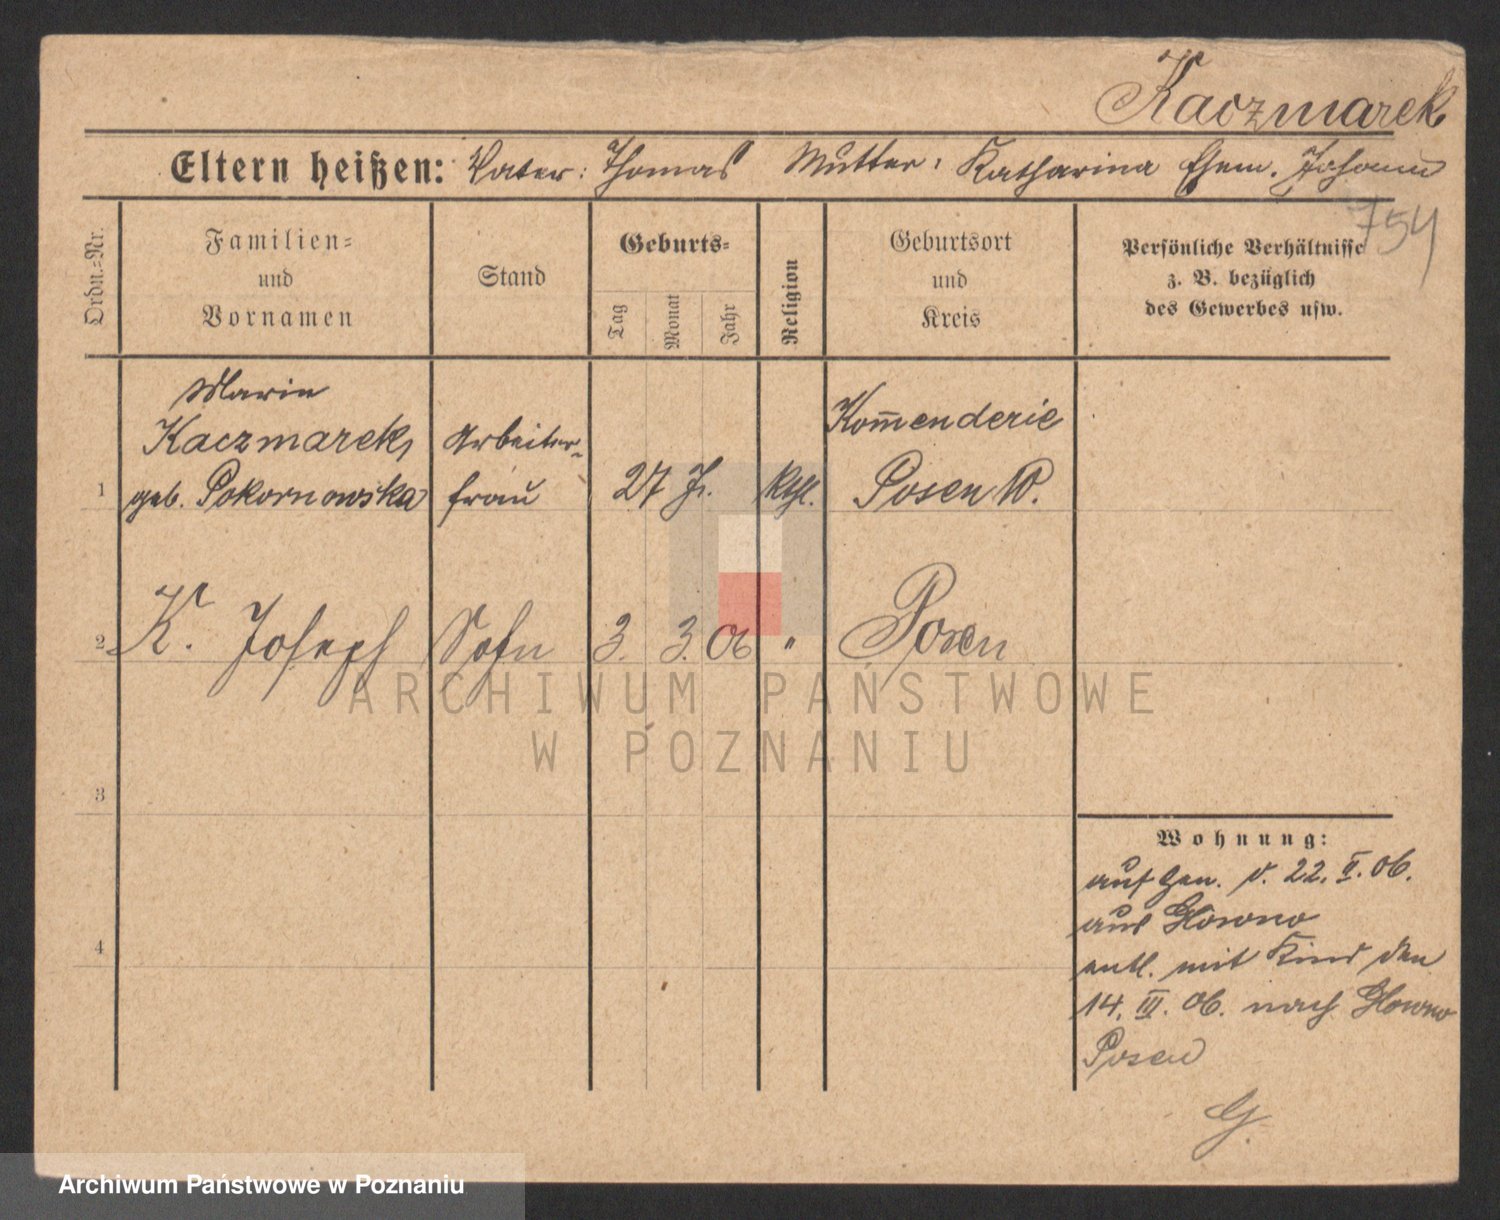 Kaczmarek
Eltern heißen: Vater: Thomas Mutter: Katharina Ehem. Johann
754
Ordn.-Nr.
Familien-
und
Vornamen
Stand
Geburts-
Tag
Monat
Jahr
Religion
Geburtsort
und
Kreis
Persönliche Verhältnisse
z. B. bezüglich
des Gewerbes usw.
Marie
Kaczmarek,
geb. Pokornowska
Arbeiter-
frau
1
27 J.
Kthl.
Kom̄enderie
Posen W.
2
K. Joseph
Sohn
3. 3. 06
"
Posen
ARCHIWUM PAŃSTWOWE
W POZNANIU
3
4
Wohnung:
auf Gen. v. 22. II. 06.
aus Glowno
entl. mit Kind den
14. III. 06. nach Glowno
Posen
G.
Archiwum Państwowe w Poznaniu